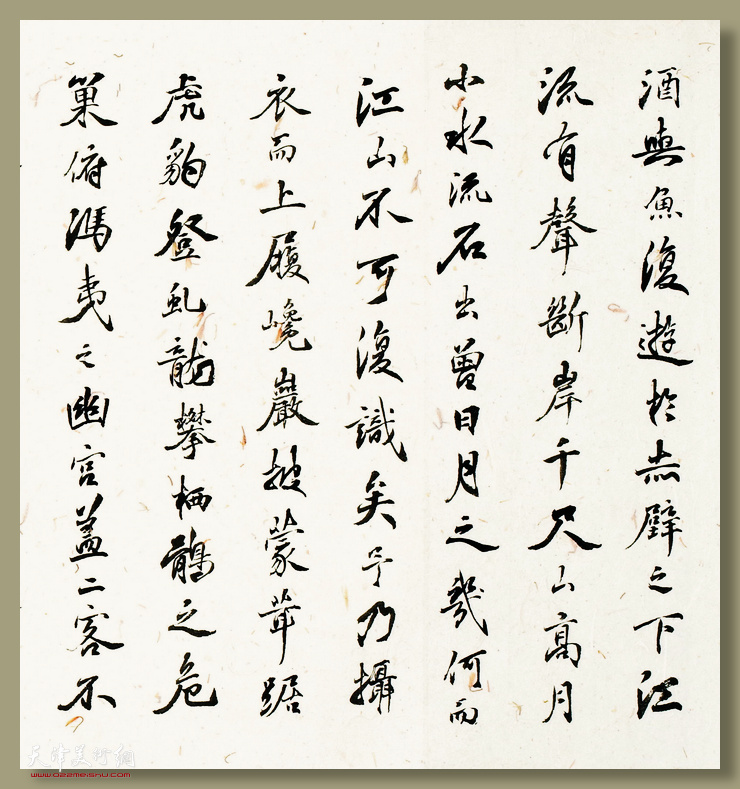 酒與魚復遊於赤壁之下江
流有聲斷岸千尺山高月
小水流石出曾日月之幾何而
江山不可復識矣予乃攝
衣而上履巉巖披蒙茸踞
虎豹登虬龍攀栖鶻之危
巢俯馮夷之幽宮蓋二客不
天津美術網
www.022meishu.com